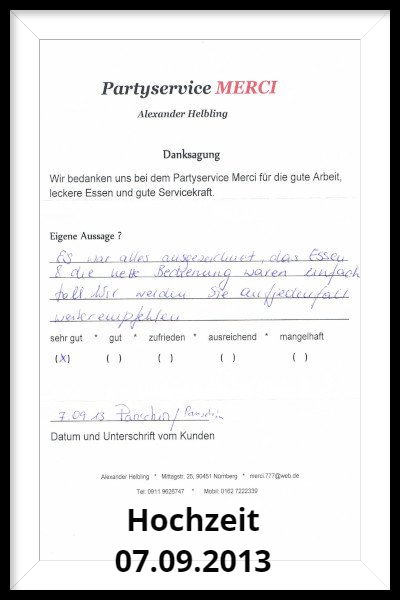 Partyservice MERCI
Alexander Helbling
Danksagung
Wir bedanken uns bei dem Partyservice Merci für die gute Arbeit,
leckere Essen und gute Servicekraft.
Eigene Aussage ?
ES war alles ausgezeichnet, das Essen
& die nette Bedienung waren einfach
toll. Wir werden Sie aufjedenfall
weiterempfehlen
sehr gut * gut * zufrieden * ausreichend * mangelhaft
(X) ( ) ( ) ( ) ( )
7.09.13
Datum und Unterschrift vom Kunden
Alexander Helbling * Mittagstr. 25, 90451 Nürnberg * merci.777@web.de
Tel: 0911 9626747 * Mobil: 0162 7222339
Hochzeit
07.09.2013